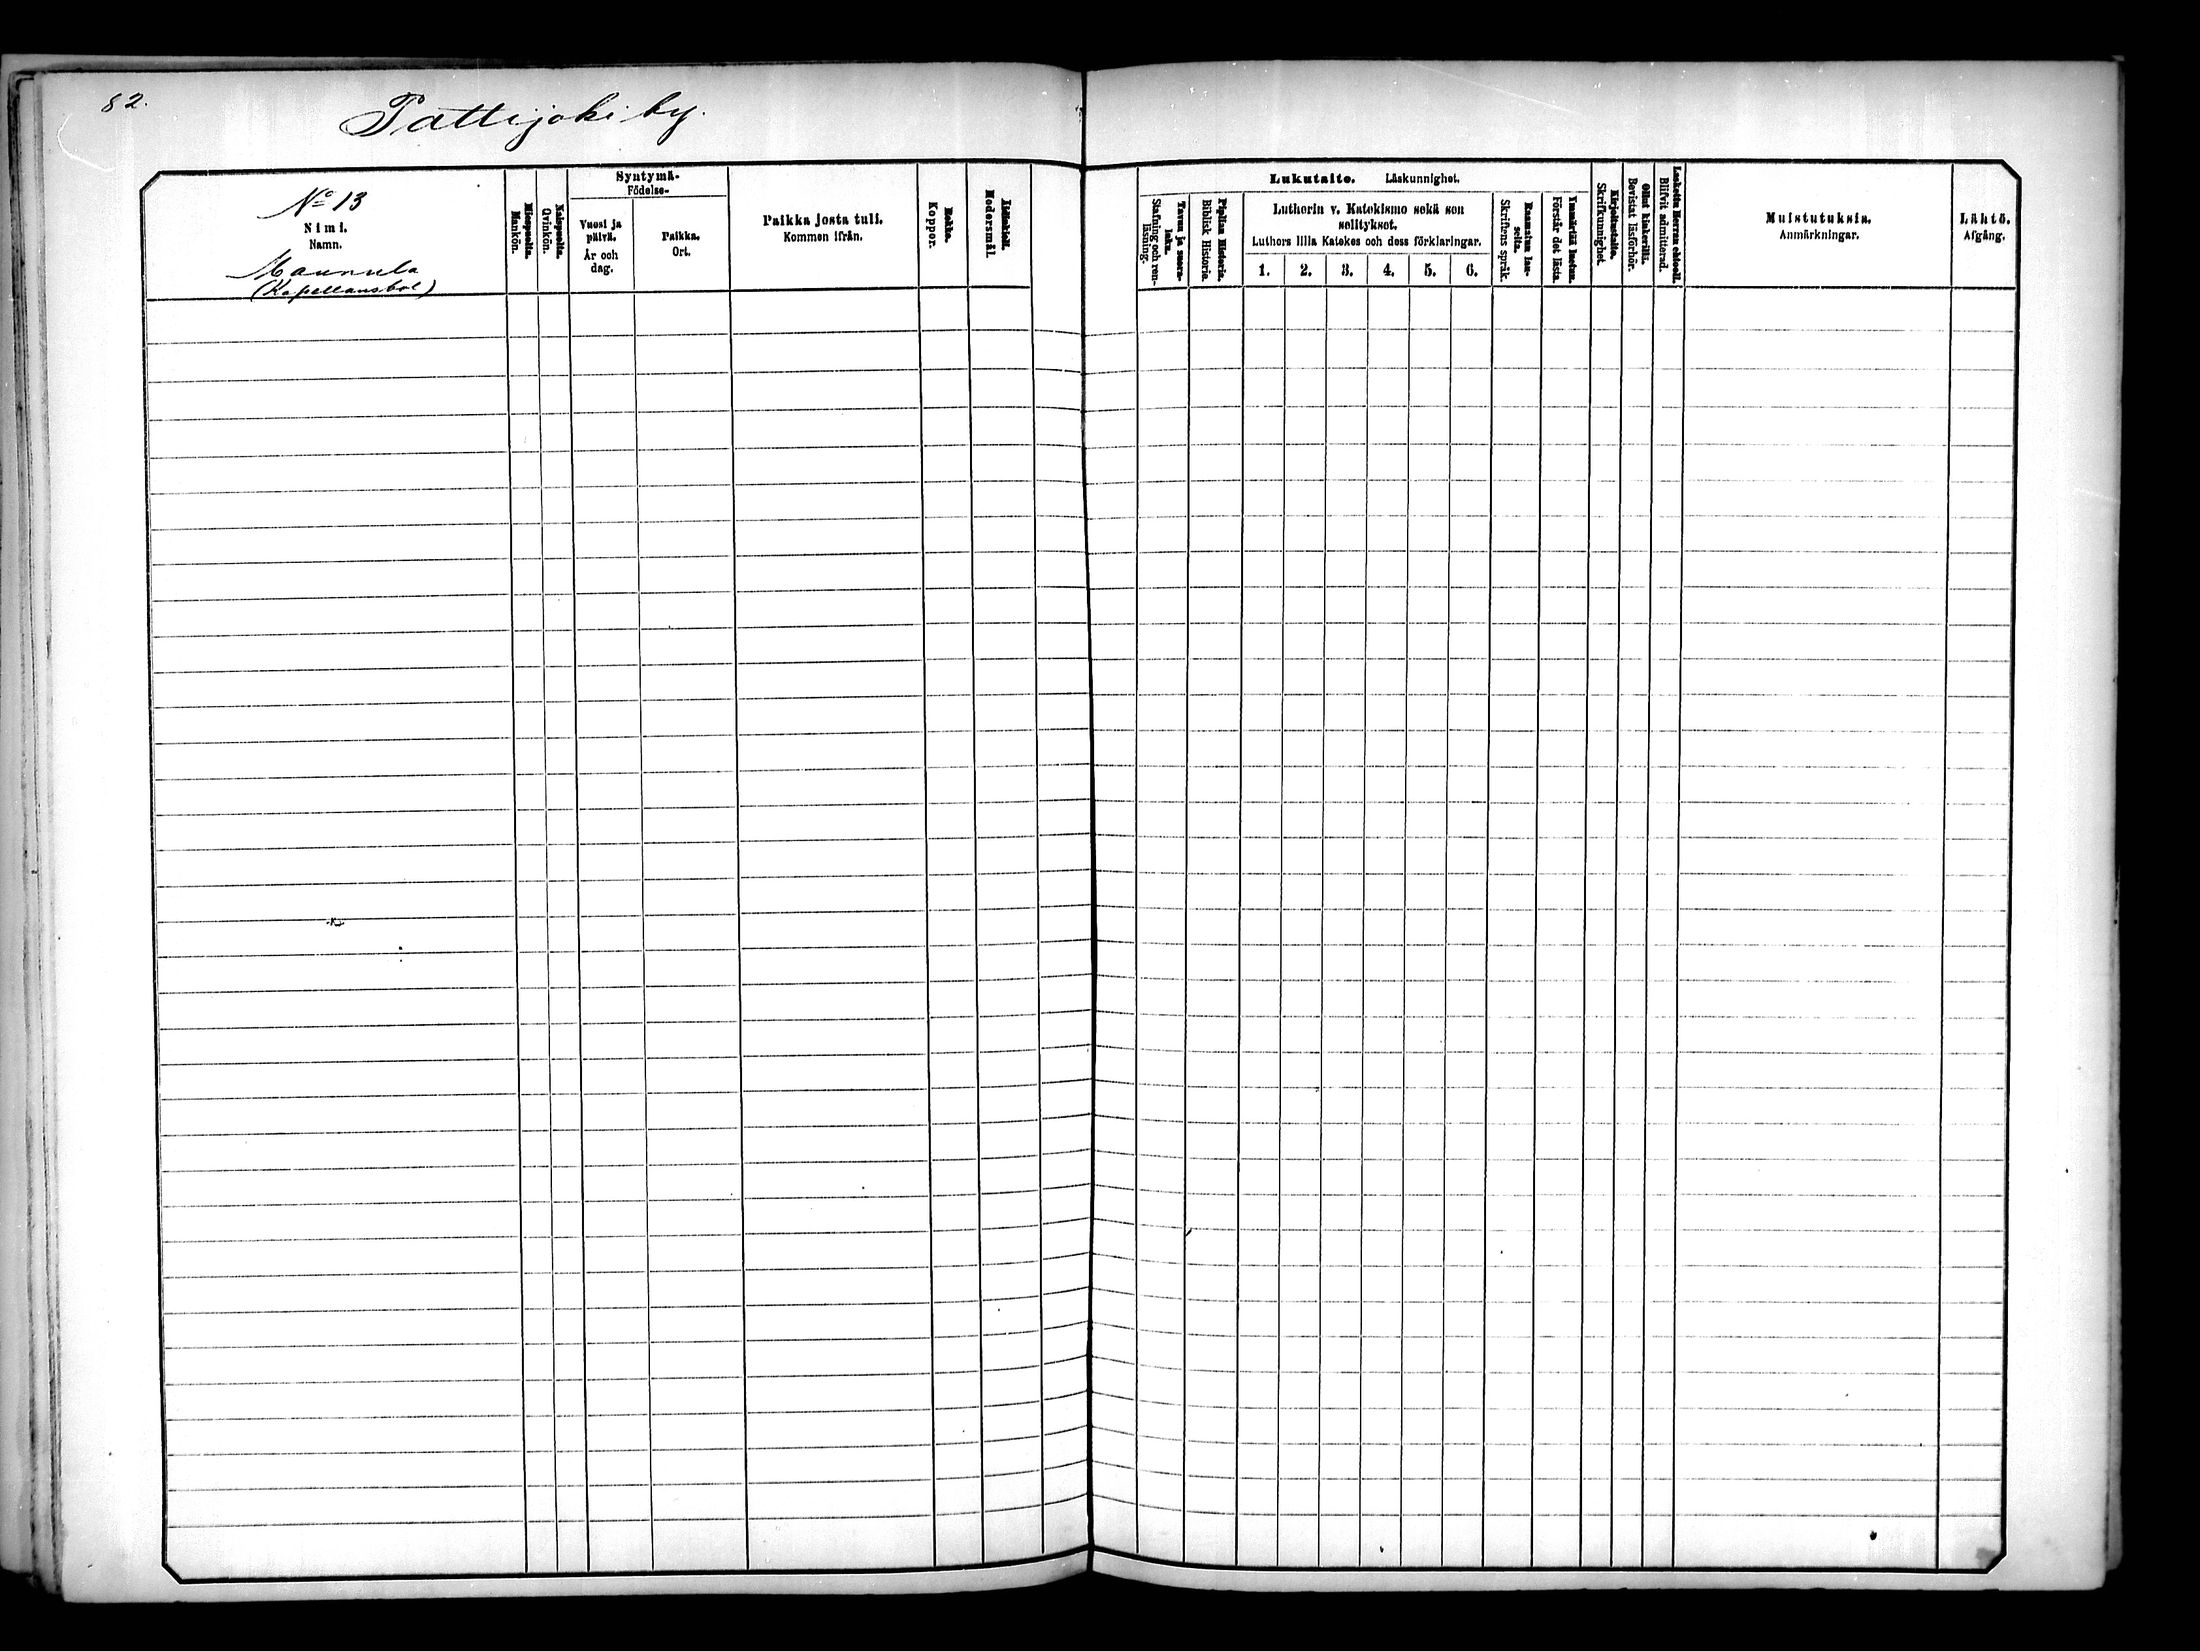 82.
Pattijoki by.
No 13
Nimi.
Namn.
Maunula
(Kapellansbol)
Miespuolia.
Mankön.
Naispuolia.
Qvinkön.
Syntymä-
Födelse-
Vuosi ja
päivä.
År och
dag.
Paikka.
Ort.
Paikka josta tuli.
Kommen ifrån.
Rokko.
Koppor.
Äidinkieli.
Modersmål.
Lukutaito. Läskunnighet.
Tavuu ja suora-
luku.
Stafning och ren-
läsning.
Piplian Historia.
Biblisk Historia.
Lutherin v. Katekismo sekä sen
selitykset.
Luthers lilla Katekes och dess förklaringar.
1. 2. 3. 4. 5. 6.
Raamatun lau-
seita.
Skriftens språk.
Ymmärtää luetun.
Förstår det lästa.
Kirjoitustaito.
Skrifkunnighet.
Ollut kinkerillä.
Bevistat läsförhör.
Laskettu Herran ehtoolle.
Blifvit admitterad.
Muistutuksia.
Anmärkningar.
Lähtö.
Afgång.